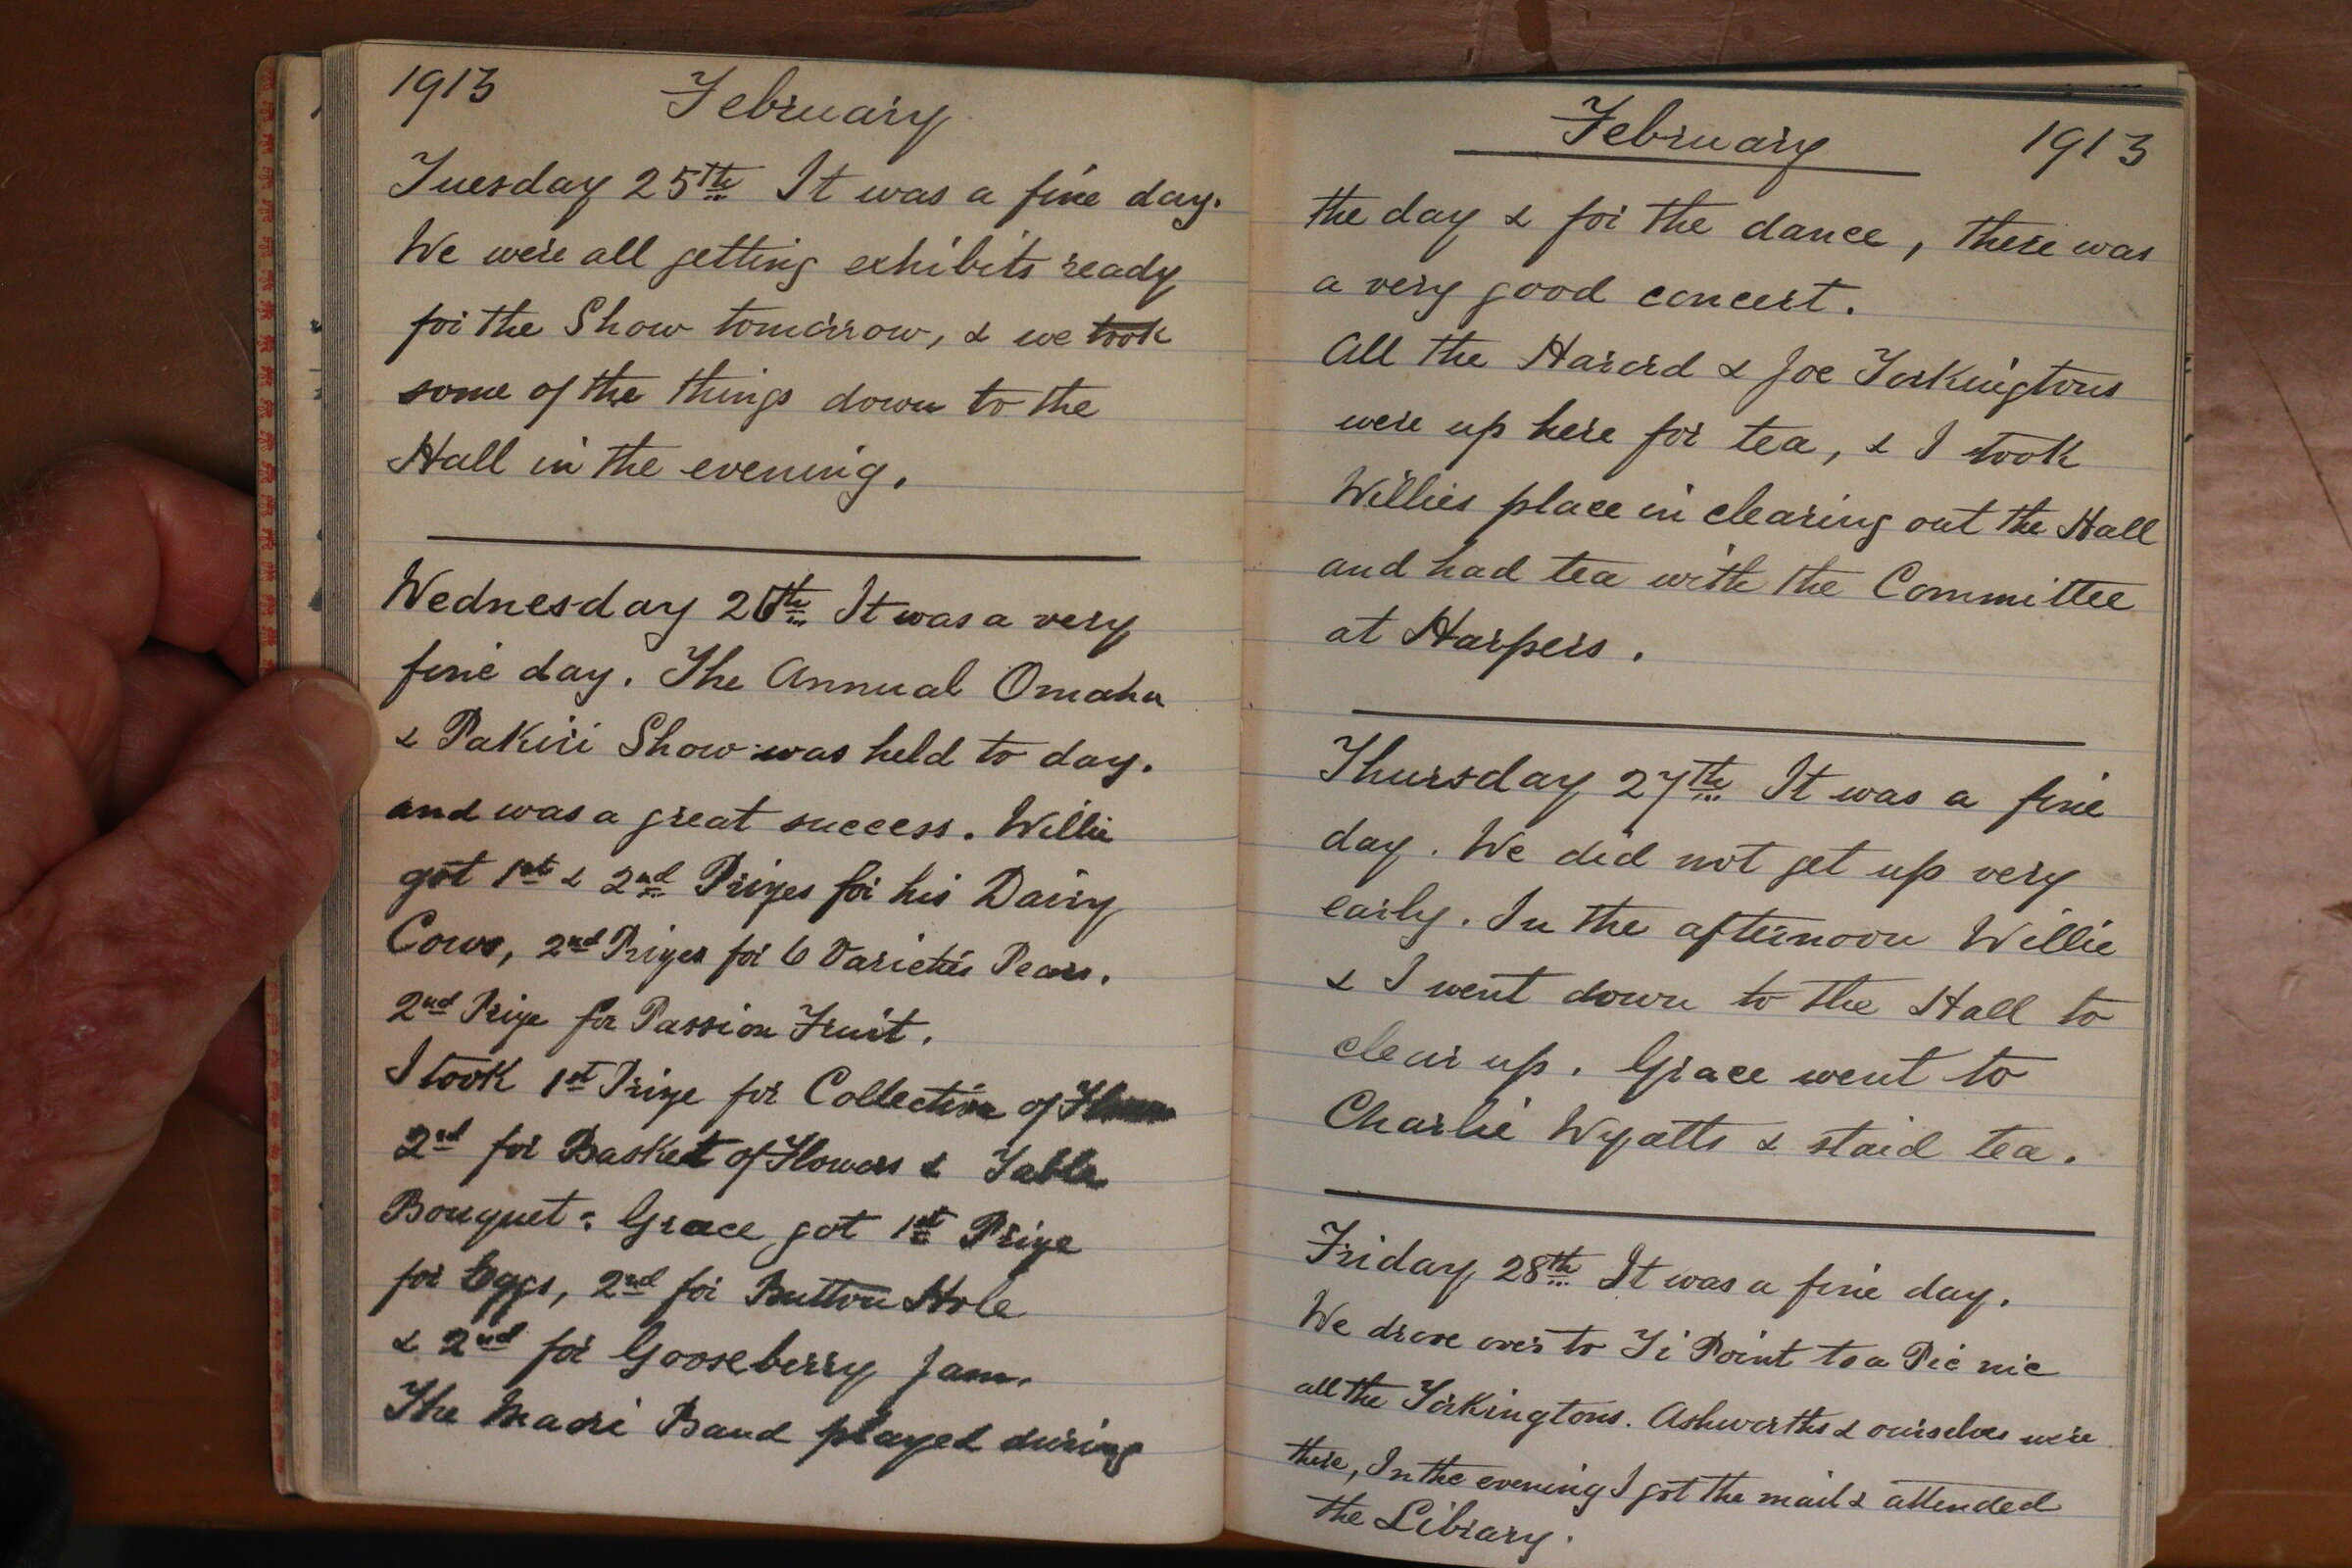 1913 February
Tuesday 25th It was a fine day.
We were all getting exhibits ready
for the Show tomorrow, & we took
some of the things down to the
Hall in the evening.
Wednesday 26th It was a very
fine day. The Annual Omaha
& Pakiri Show was held to day.
and was a great success. Willie
got 1st & 2nd Prizes for his Dairy
Cows, 2nd Prizes for 6 Varieties Pears.
2nd Prize for Passion Fruit.
I took 1st Prize for Collection of
2nd for Basket of Flowers & Table
Bouquet: Grace got 1st Prize
for Eggs, 2nd for Button Hole
& 2nd for Gooseberry Jam.
The Maori Band played during
February 1913
the day & for the dance, there was
a very good concert.
All the Harord & Joe Torkingtons
were up here for tea, & I took
Willies place in clearing out the Hall
and had tea with the Committee
at Harpers.
Thursday 27th It was a fine
day. We did not get up very
early. In the afternoon Willie
& I went down to the Hall to
clear up. Grace went to
Charlie Wyatts & staid tea.
Friday 28th It was a fine day.
We drove over to Ti Point to a Pic nic
all the Torkingtons. Ashworths & ourselves were
there, In the evening I got the mail & attended
the Library.